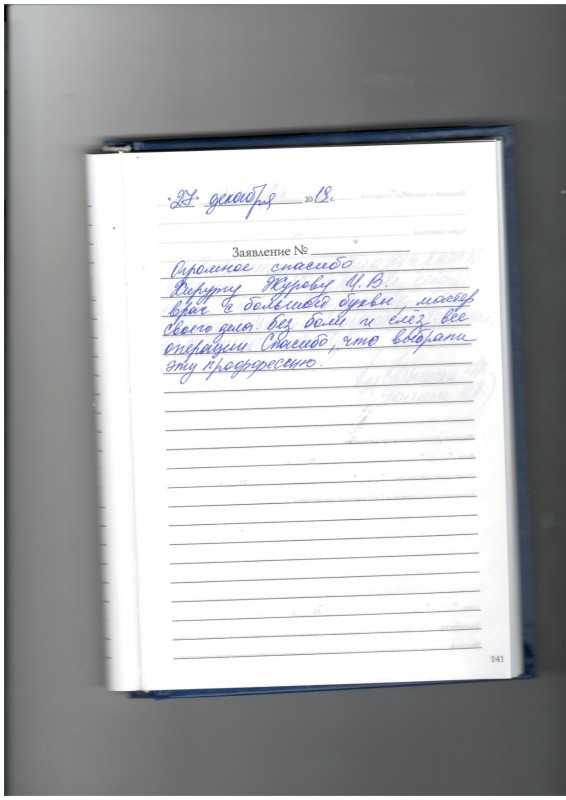 "27" декабря 2018г.
Заявление №
Огромное спасибо
Хирургу Журову И.В.
врач с большой буквы, мастер
своего дела без боли и слёз все
операции Спасибо, что выбрали
эту профессию.
141